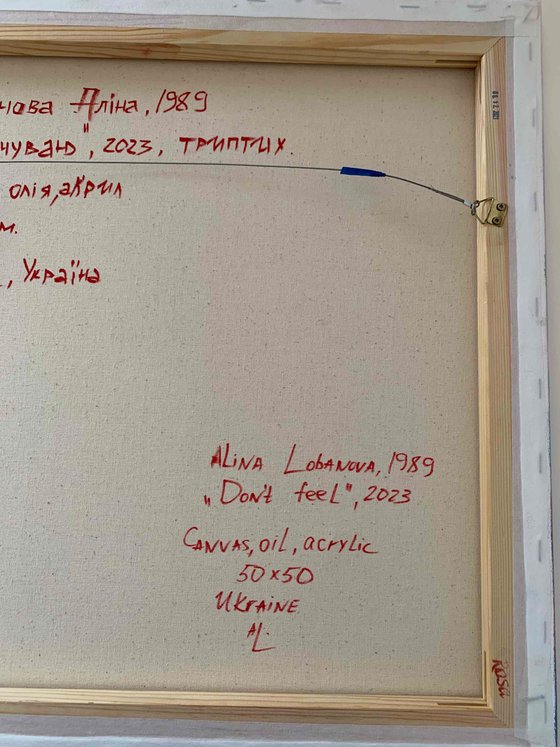 нова Аліна, 1989
чуваю", 2023, триптих.
олія, акрил
м.
, Україна
Alina Lobanova, 1989
„Don't feel", 2023
Canvas, oil, acrylic
50x50
Ukraine
AL